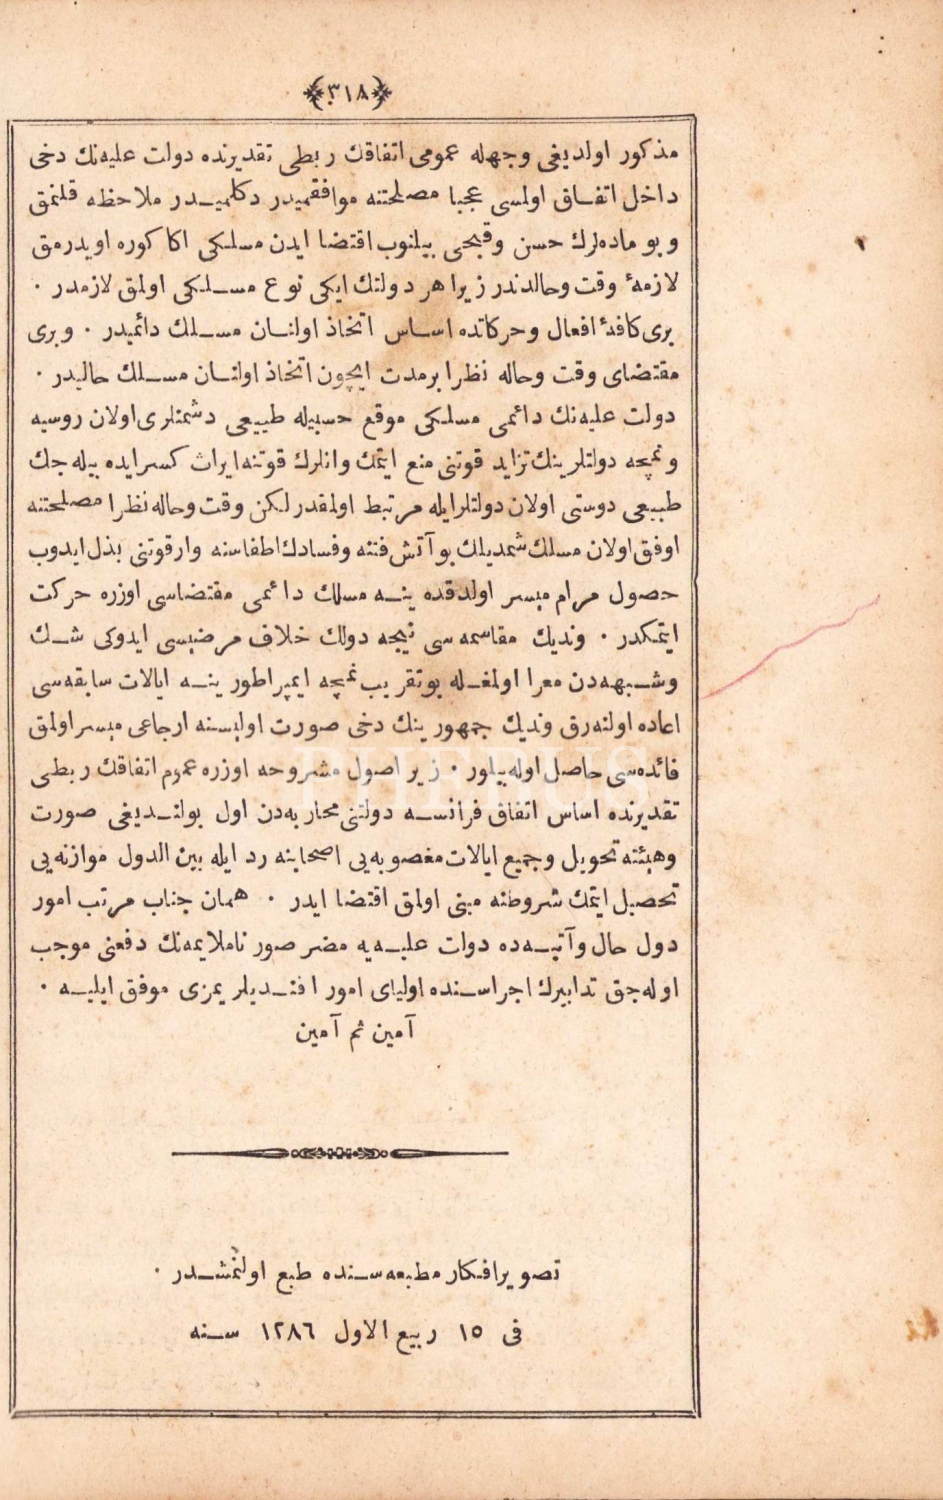 ﴿٣١٨﴾
مذكور اولديغى وجهله عمومى اتفاقك ربطى تقديرنده دولت عليه‌نك دخى
داخل اتفـاق اولمسى عجبا مصلحتنه موافقميدر دكلميـدر ملاحظه قلنمق
و بو ماده‌لرك حسن وقبحى بيلنوب اقتضا ايدن مسلكى اكا كوره اويدرمق
لازمهٔ وقت وحالدندر زيرا هر دولتك ايكى نوع مسـلكى اولمق لازمدر ٠
برى كافهٔ افعال وحركاتده اسـاس اتخاذ اولنـان مسـلك دائميدر ٠ وبرى
مقتضاى وقت وحاله نظرا برمدت ايچون اتخاذ اولنـان مسـلك حاليدر ٠
دولت عليه‌نك دائمى مسلكى موقع حسبيله طبيعى دشمنلرى اولان روسيه
و نمچه دولتلرينك تزايد قوتنى منع ايتمك وانلرك قوتنه ايراث كسر ايده بيله جك
طبيعى دوستى اولان دولتلرايله مرتبط اولمقدر لكن وقت وحاله نظرا مصلحتنه
اوفق اولان مسلك شمديلك بو آتش فتنه وفسادك اطفاسنه وار قوتنى بذل ايدوب
حصول مرام ميسر اولدقده ينـه مسلك دائمى مقتضاسى اوزره حركت
ايتمكدر ٠ ونديك مقاسمه سى نيجه دولك خلاف مرضيسى ايدوكى شـك
وشـبهه‌دن معرا اولمغـله بوتقريب نمچه ايمپراطور ينـه ايالات سابقه‌سى
اعاده اولنه‌رق ونديك جمهور ينك دخى صورت اوليسنه ارجاعى ميسر اولمق
فائده‌سى حاصل اوله بيلور ٠ زيرا اصول مشروحه اوزره عموم اتفاقك ربطى
تقديرنده اساس اتفاق فرانسـه دولتنى محاربه‌دن اول بولنـديغى صورت
وهيئته تحويل وجميع ايالات مغصوبه‌يى اصحابنه رد ايله بين الدول موازنه‌يى
تحصيل ايتمك شروطنه مبنى اولمق اقتضا ايدر ٠ همان جناب مرتب امور
دول حال وآتيـه‌ده دولت عليـه‌يه مضر صور ناملايمه‌نك دفعنى موجب
اوله‌جق تدابيرك اجراسـنده اولياى امور افنـديلر يمزى موفق ايليـه ٠
آمين ثم آمين
تصوير افكار مطبعه سـنده طبع اولنمشـدر ٠
فى ١٥ ربيع الاول ١٢٨٦ سـنه
PHEBUS